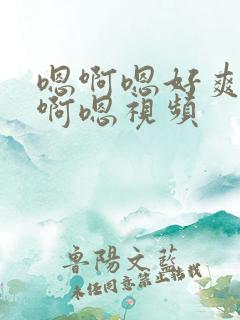 嗯啊嗯好爽
啊嗯視頻
魯陽文藍
未经同意禁止转载